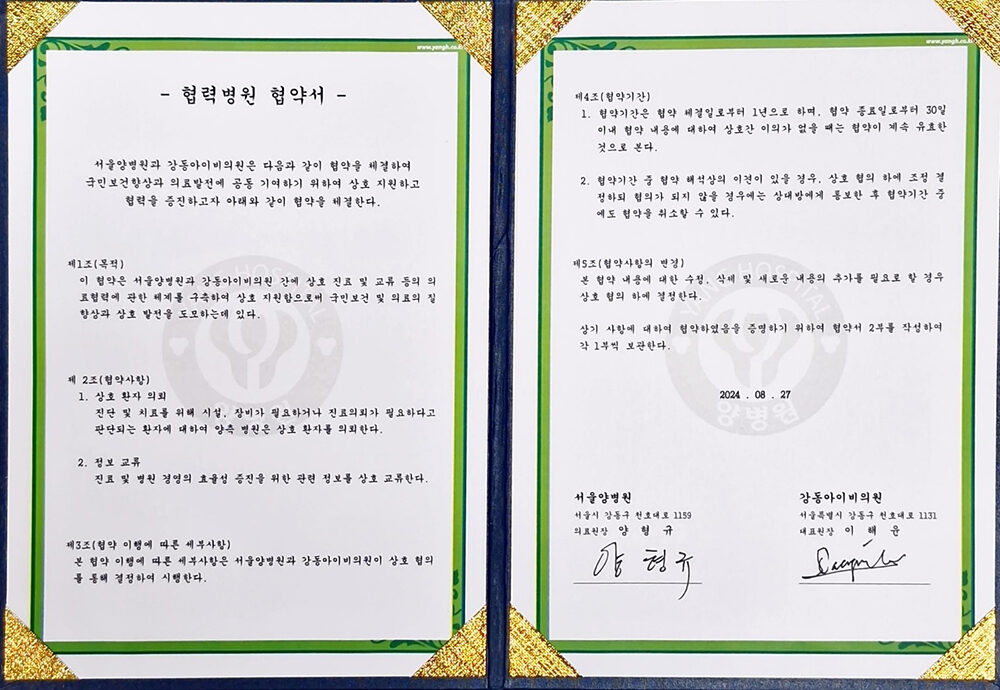 www.yangh.co.kr
- 협력병원 협약서 -
서울양병원과 강동아이비의원은 다음과 같이 협약을 체결하여
국민보건향상과 의료발전에 공동 기여하기 위하여 상호 지원하고
협력을 증진하고자 아래와 같이 협약을 체결한다.
제1조(목적)
이 협약은 서울양병원과 강동아이비의원 간에 상호 진료 및 교류 등의 의
료협력에 관한 체계를 구축하여 상호 지원함으로써 국민보건 및 의료의 질
향상과 상호 발전을 도모하는데 있다.
제 2조(협약사항)
1. 상호 환자 의뢰
진단 및 치료를 위해 시설, 장비가 필요하거나 진료의뢰가 필요하다고
판단되는 환자에 대하여 양측 병원은 상호 환자를 의뢰한다.
2. 정보 교류
진료 및 병원 경영의 효율성 증진을 위한 관련 정보를 상호 교류한다.
제3조(협약 이행에 따른 세부사항)
본 협약 이행에 따른 세부사항은 서울양병원과 강동아이비의원이 상호 협의
를 통해 결정하여 시행한다.
www.yangh.co.kr
제4조(협약기간)
1. 협약기간은 협약 체결일로부터 1년으로 하며, 협약 종료일로부터 30일
이내 협약 내용에 대하여 상호간 이의가 없을 때는 협약이 계속 유효한
것으로 본다.
2. 협약기간 중 협약 해석상의 이견이 있을 경우, 상호 협의 하에 조정 결
정하되 협의가 되지 않을 경우에는 상대방에게 통보한 후 협약기간 중
에도 협약을 취소할 수 있다.
제5조(협약사항의 변경)
본 협약 내용에 대한 수정, 삭제 및 새로운 내용의 추가를 필요로 할 경우
상호 협의 하에 결정한다.
상기 사항에 대하여 협약하였음을 증명하기 위하여 협약서 2부를 작성하여
각 1부씩 보관한다.
2024 . 08 . 27
양병원
서울양병원
서울시 강동구 천호대로 1159
의료원장 양 형 규
양 형 규
강동아이비의원
서울특별시 강동구 천호대로 1131
대표원장 이 해 운